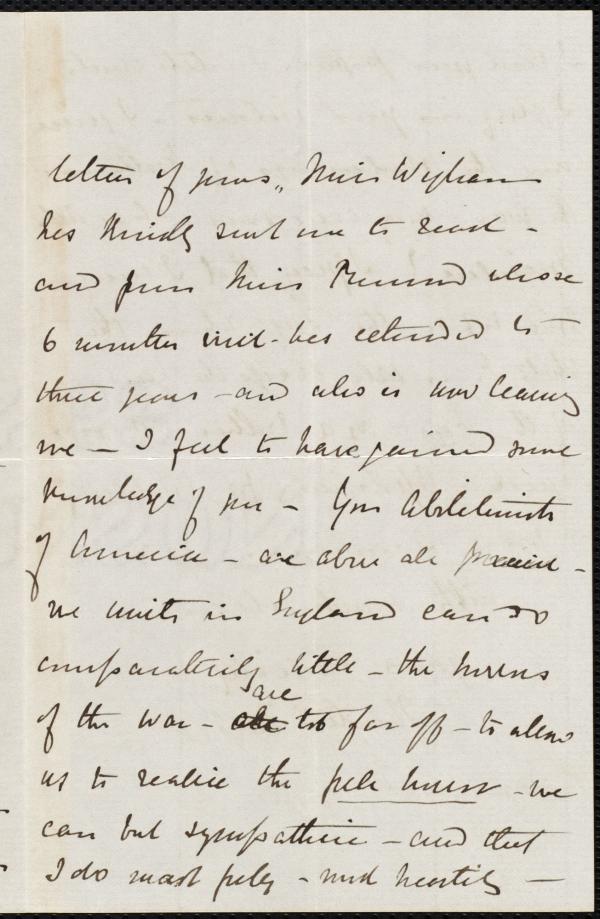 letters of yours, Miss Wigham
has kindly sent me to read -
and from Miss Remond whose
6 months visit - has extended to
three years - and also is now leaving
me - I feel to have gained some
knowledge of you - You Abolitionists
of America - are above all praise -
we units in England can do
comparatively little - the horrors
of the war - are too far off - to allow
us to realise the full horror - we
can but sympathise - and that
I do most fully - and heartily -